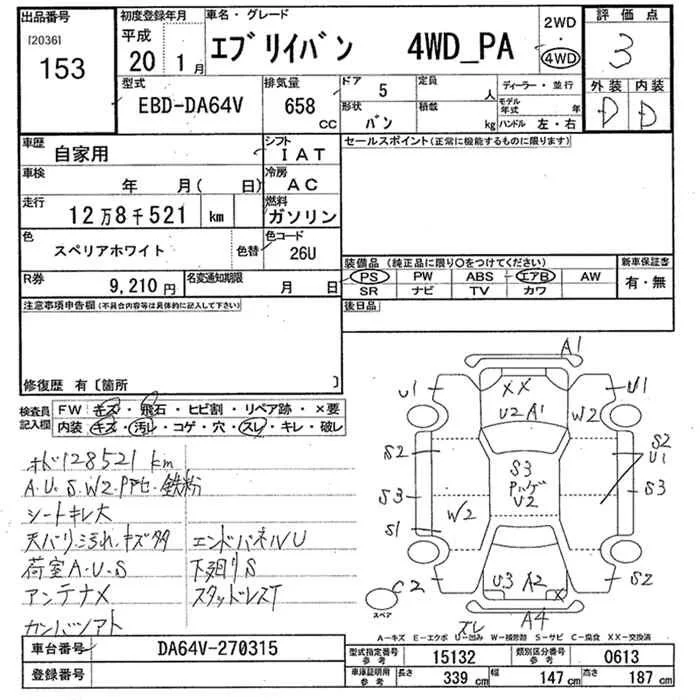 出品番号
[2036]
153
初度登録年月
平成
20 1月
車名・グレード
エブリイバン 4WD_PA
2WD
・
4WD
評価点
3
外装 内装
D D
型式
EBD-DA64V
排気量
658 CC
ドア 5
定員 人
形状 バン
積載 kg
ディーラー・並行
モデル年式 年
ハンドル 左・右
車歴
自家用
シフト
IAT
セールスポイント(正常に機能するものに限ります)
車検
年 月( 日)
冷房
AC
走行
12万8千521 km
燃料
ガソリン
色
スペリアホワイト
色替
色コード
26U
装備品 (純正品に限り○をつけてください)
PS PW ABS エアB AW
SR ナビ TV カワ
新車保証書
有・無
R券
9,210円
名変通知期限
月 日
後日品
注意事項申告欄(不具合内容等は具体的に記入して下さい)
修復歴 有〔箇所 〕
検査員記入欄
FW キズ・飛石・ヒビ割・リペア跡・×要
内装 キズ・汚レ・コゲ・穴・スレ・キレ・破レ
オド128521km
A.U.S.W2.PPセ.鉄粉
シートキレ大
天バリ.汚れ.キズタタ エンドパネルU
荷室A.U.S 下廻りS
アンテナメ スタッドレスT
ガンバンアト
A1
U1
XX
U2 A1
W2
U1
S2
S2
U1
S3
S3
U2
S3
S3
W2
S1
C2
U3 A2 X
S2
A4
スペア
ズレ
A―キズ E―エクボ U―凹み W―補修跡 S―サビ C―腐食 XX―交換済
車台番号
DA64V-270315
登録番号
型式指定番号 参考
15132
類別区分番号 参考
0613
車庫証明用 参考
長さ 339cm
幅 147cm
高さ 187cm